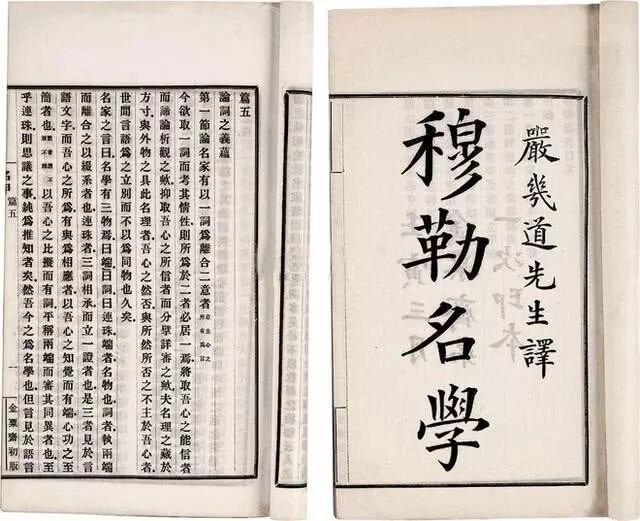 嚴幾道先生譯
穆勒名學
篇五
論詞之義蘊
第一節論名家有以一詞爲離合二意者
今欲取一詞而考其情性則所爲於二者必居一焉將取吾心之能信者
而諦論析觀之歟抑取吾心之所信者而分擘詳審之歟夫名理之藏於
方寸與外物之具此名理者吾心之然否與所然所否之不主於吾心者
世間言語爲之立別而不以爲同物也久矣
名家之言曰名學有三物焉曰端曰詞曰連珠端者名物也詞者執兩端
而離合之以綴系者也連珠者三詞相承而立一證者也是三者見於言
語文字而吾心之所爲有與爲相應者以吾心之知覺而有端心功之至
簡者也以吾心之比擬而有詞平稱兩端而審其同異者也至
乎連珠則思議之事純爲推知者矣然吾今之爲名學也但言見於語言
篇五 一 金粟齋初版